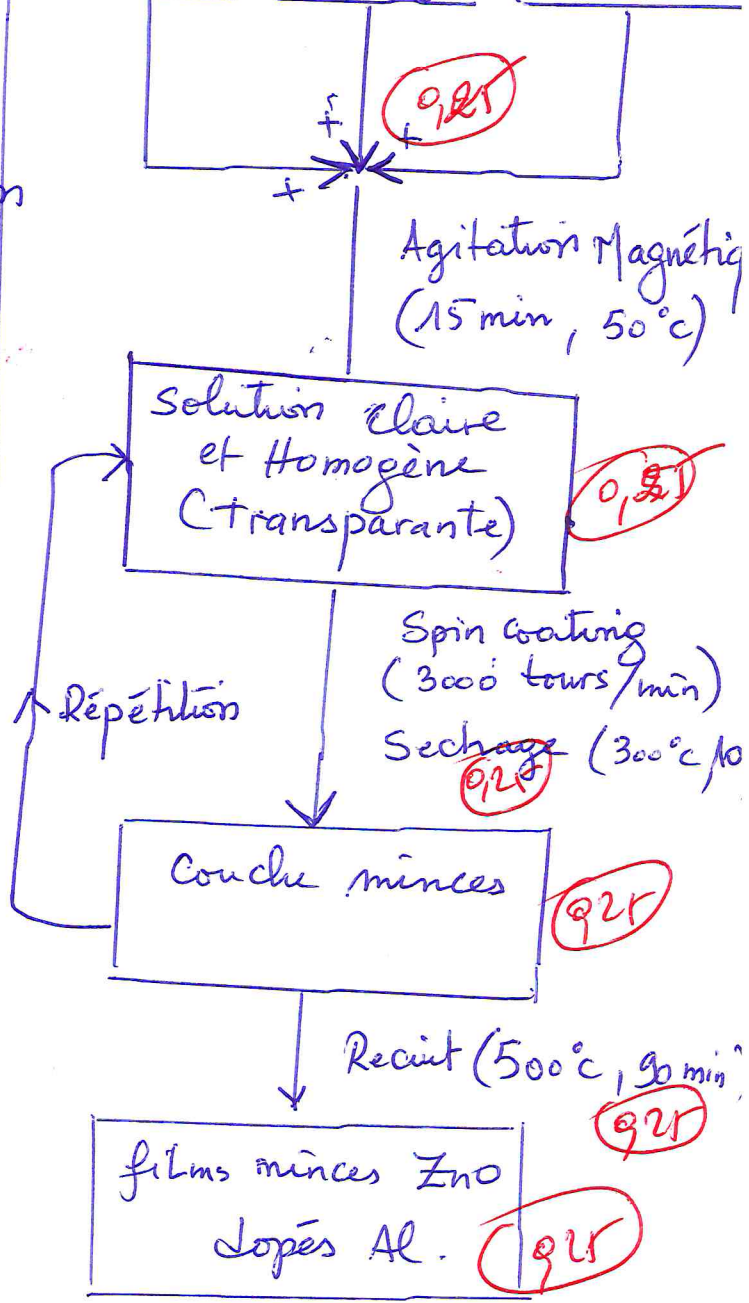 0,25
+ +
+
Agitation Magnétiq
(15 min, 50°c)
Solution claire
et Homogène
(transparante)
0,25
Spin coating
(3000 tours/min)
Répétition
Sechage (300°c/10
0,25
couche minces
0,25
Recuit (500°c, 90 min
0,25
films minces ZnO
dopés Al.
0,25